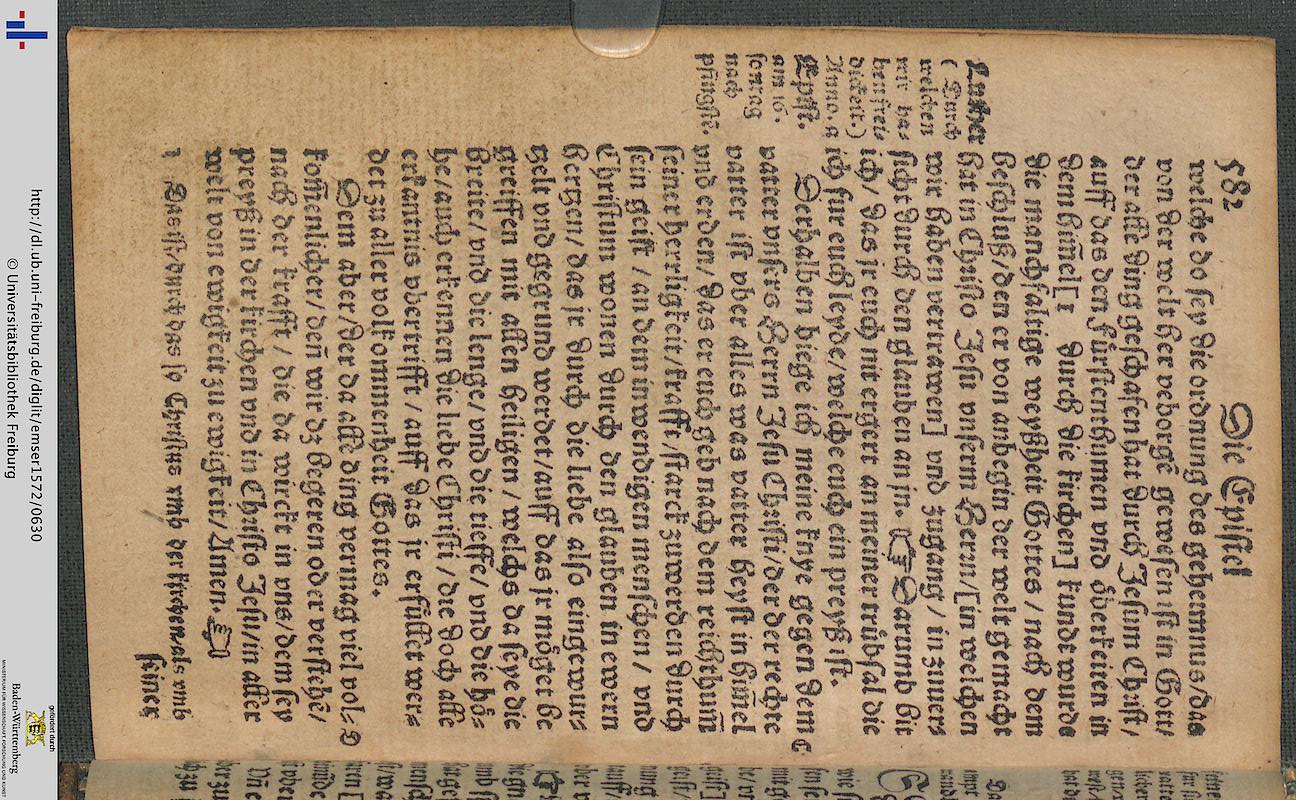 582
Die Epistel
welche do sey die ordnung des geheimnus/das
von der welt her veborgẽ gewesen ist in Gott/
der alle ding geschafen hat durch Jesum Christ/
auff das den fürstenthümen vnd öberkeiten in
dem him̃el[1 durch die kirchen] kundt wurde
die manchfaltige weyßheit Gottes / nach dem
beschluß/den er von anbegin der welt gemacht
hat in Christo Jesu vnserm Herrn/[in welchen
wir haben vertrawen] vnd zugang / in zuuer-
sicht durch den glauben an jn. ☞Darumb bit
ich/ das jr euch nit ergert an meiner trübsal die
ich für euch leyde/welche euch ein preyß ist.
Derhalben biege ich meine knye gegen dem
vatter vnsers Herrn Jesu Christi/der der rechte
vatter ist vber alles was vatter heyst in him̃el
vnd erden/das er euch geb nach dem reichthum̃
seiner herrligkeit/krafft /starck zuwerden durch
sein geist / an dem inwendigen menschen / vnd
Christum wonen durch den glauben in ewern
hertzen/das jr durch die liebe also eingewur-
tzelt vnd gegrund werdet/auff das jr mögt be
greiffen mit allen heiligen / welchs da seye die
breite/vnd die lenge/vnd die tieffe/ vnd die hö-
he/auch erkennen die liebe Christi/die doch alle
erkantnis vbertrifft / auff das jr erfüllet wer-
det zu aller volkommenheit Gottes.
Dem aber/der da alle ding vermag viel vol-
kom̃enlicher/den̄ wir dz begeren oder verstehẽ/
nach der krafft / die da wirckt in vns/dem sey
preyß in der kirchen vnd in Christo Jesu/in aller
welt von ewigkeit zu ewigkeit/Amen.
Luther
(Durch
welchen
wir ha-
ben freis
digkeit.)
Anno. a
Epist.
am 16.
sontag
nach
pfingstẽ.
c
D
1 Das ist/durch das so Christus vmb der kirchen als vmb
seiner
http://dl.ub.uni-freiburg.de/diglit/emser1572/0630
© Universitätsbibliothek Freiburg
gefördert durch
Baden-Württemberg
MINISTERIUM FÜR WISSENSCHAFT, FORSCHUNG UND KUNST